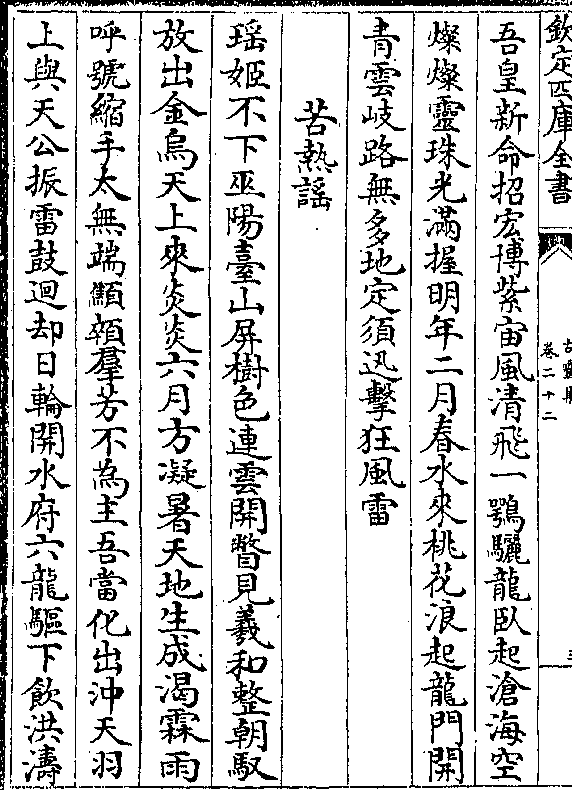 欽定四庫全書
卷二十二
吾皇新命招宏博紫宙風清飛一鶚驪龍臥起滄海空
燦燦靈珠光滿握明年二月春水來桃花浪起龍門開
青雲岐路無多地定須迅擊狂風雷
苦熱謡
瑶姬不下巫陽臺山屏樹色連雲開瞥見羲和整朝馭
放出金烏天上來炎炎六月方凝暑天地生成渴霖雨
呼號縮手太無端顦顇羣芳不為主吾當化出沖天羽
上與天公振雷鼓迴却日輪開水府六龍驅下飲洪濤